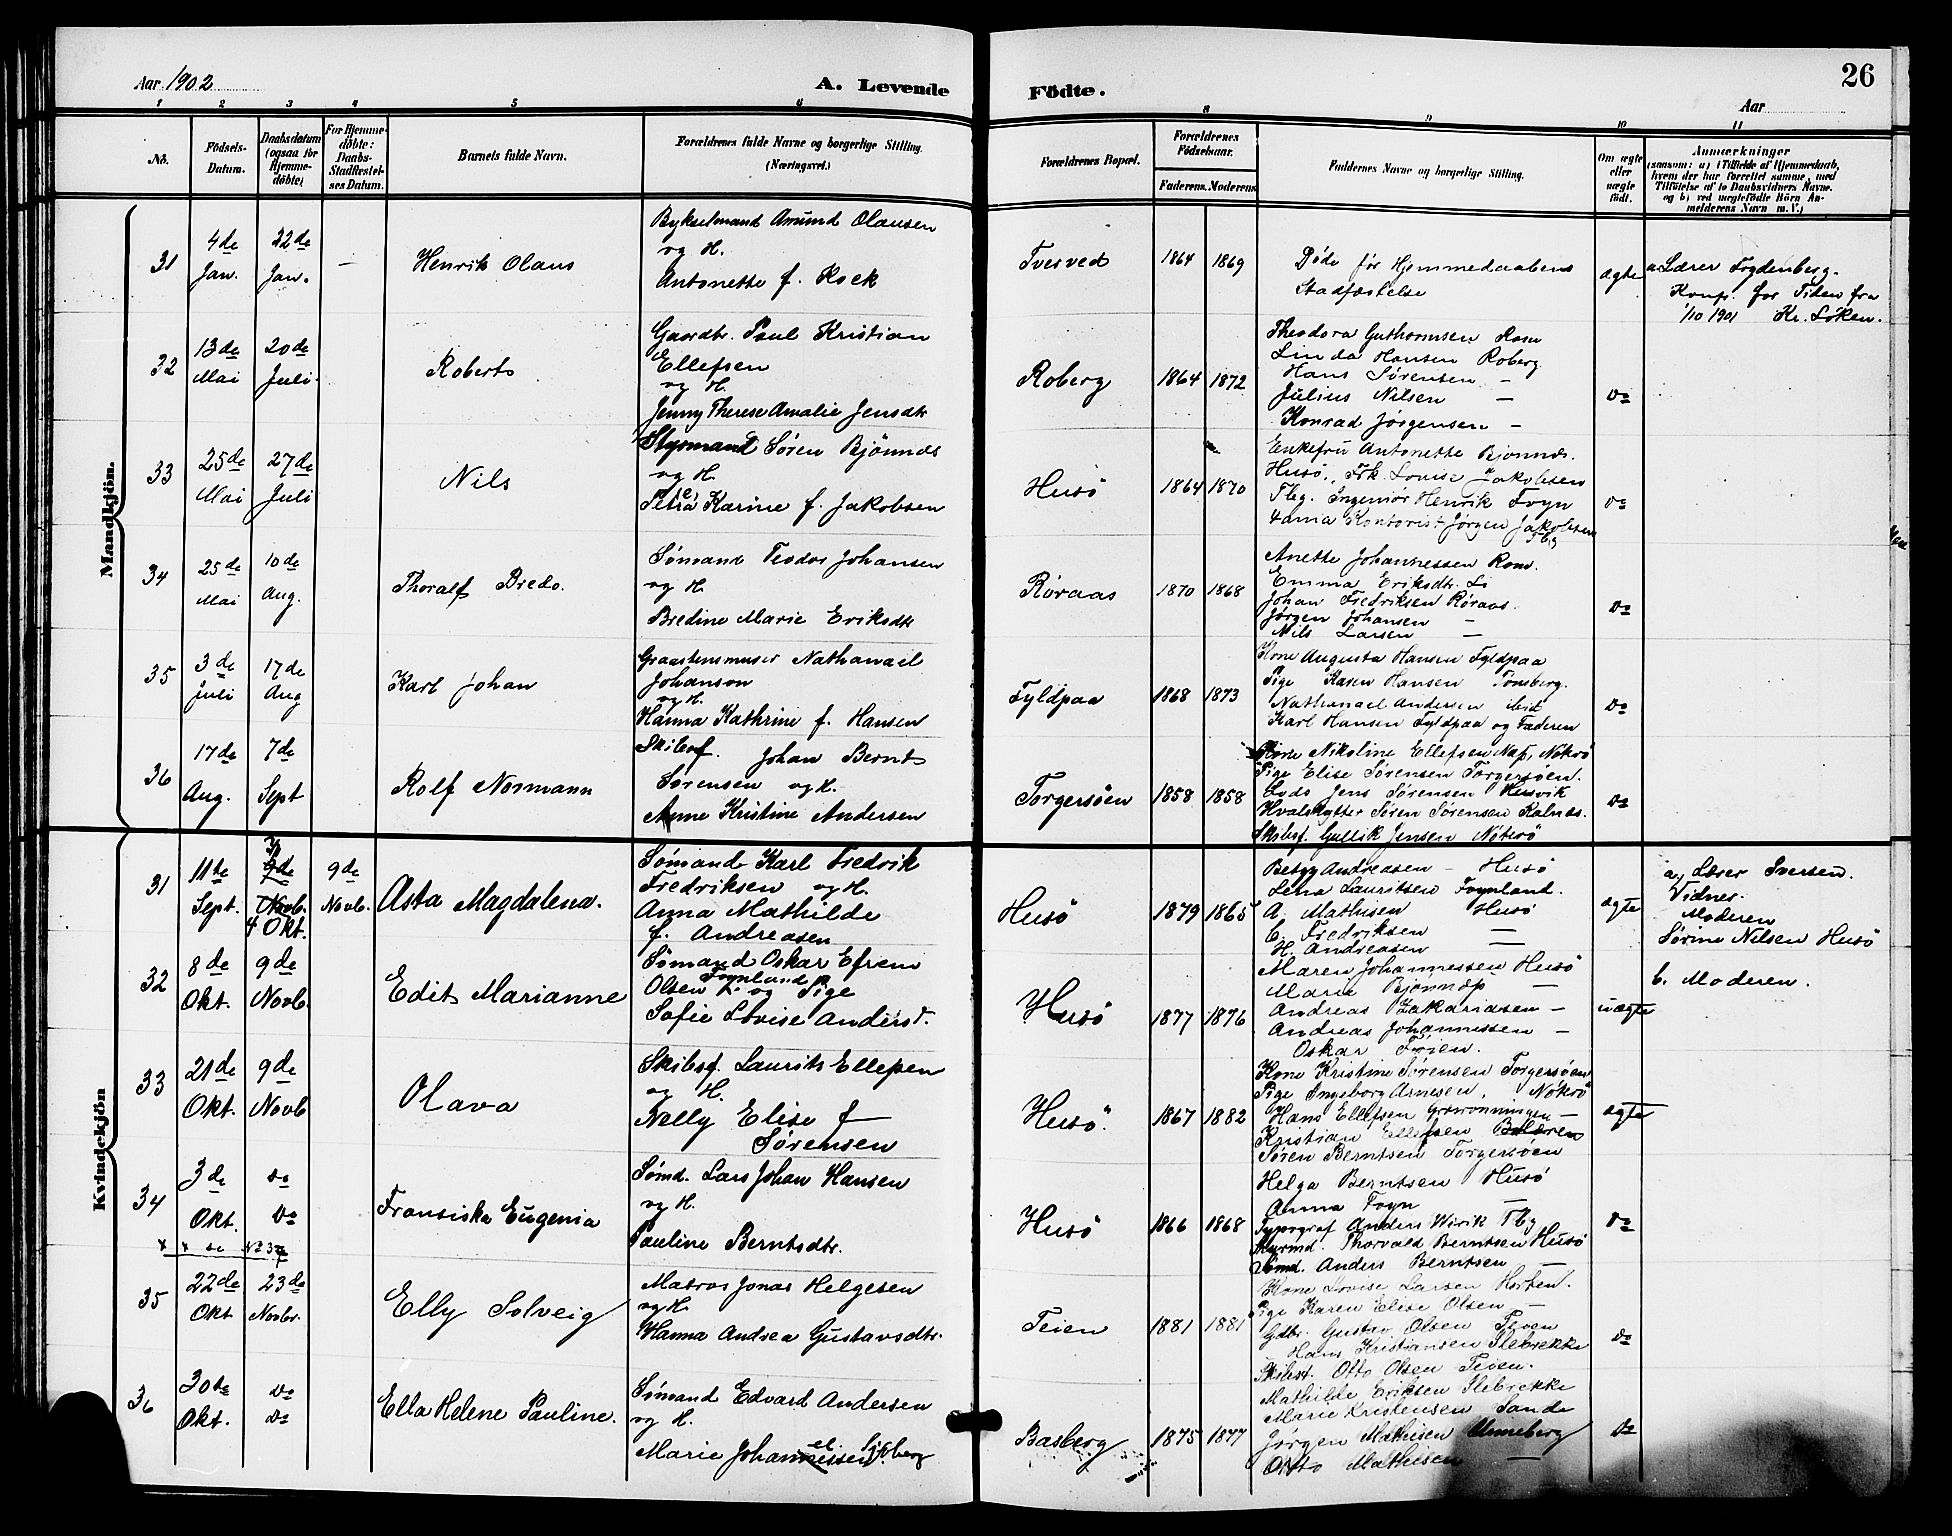 Aar 1902
A. Levende
Födte.
Aar
26
1 2 3 4 5 6
8 9 10 11
No.
Födsels-Datum.
Daabsdatum (ogsaa for Hjemme-döbte)
For Hjemme-döbte: Daabs-Stadfæstel-ses Datum.
Barnets fulde Navn.
Forældrenes fulde Navne og borgerlige Stilling. (Næringsvei.)
Forældrenes Bopæl.
Forældrenes Födselsaar.
Faderens. Moderens.
Faddernes Navne og borgerlige Stilling.
Om ægte eller uægte födt.
Anmærkninger
(saasom: a) i Tilfælde af Hjemmedaab,
hvem der har forrettet samme, med
Tilföielse af to Daabsvidners Navne.
og b) ved uægtefödte Börn An-
melderens Navn m. V.)
Mandkjön.
31
4de Jan.
22de Jan.
—
Henrik Olaus
Bykselmand Amund Olausen
og H.
Antonette f. Kock
Tvesved
1864 1869
Døde før Hjemmedaabens
Stadfæstelse
ægte
a. Lærer Frydenberg.
Konf. for Tiden fra
1/10 1901 Kr. Løken.
32
13de Mai
20de Juli
Roberts
Gaardbr. Paul Kristian
Ellefsen
og H.
Jenny Therese Amalie Jensdtr
Roberg
1864 1872
Theodora Guthormsen Rom
Linda Hansen Roberg
Hans Sørensen —
Julius Nilsen —
Konrad Jörgensen —
do
33
25de Mai
27de Juli
Nils
Styrmand Søren Bjönnes
og H.
Petra Karine f. Jakobsen
Husö
1864 1870
Enkefru Antonette Bjønnes.
Husö, Frk. Louise Jakobsen
Tbg. Ingeniør Henrik Foyn
Kontorist Jörgen Jakobsen
Tbg
do
34
25de Mai
10de Aug.
Thoralf Bredo.
Sømand Teodor Johansen
og H.
Bredine Marie Eriksdtr
Röraas
1870 1868
Anette Johannessen Rom.
Emma Eriksdtr. Li
Johan Fredriksen Röraas.
Jørgen Johansen —
Nils Larsen —
do
35
3de Juli
17de Aug
Karl Johan
Graastensmurer Nathanael
Johanson
og H.
Hanna Kathrine f. Hansen
Fyldpaa
1868 1873
Kone Augusta Hansen Fyldpaa
Pige Karen Hansen Tønsberg.
Nathanael Andersen
Karl Hansen Fyldpaa og Faderen
do
36
17de Aug.
7de Sept
Rolf Normann
Skibsf. Johan Bernt
Sørensen og H.
Anne Kristine Andersen
Torgersøen
1858 1858
Kone Nikoline Ellefsen Nöterö
Pige Elise Sørensen Torgersøen.
Lods Jens Sørensen Husvik
Hvalskytter Søren Sørensen Kalnes.
Skibsf. Gullik Jensen Nöterö
do
Kvindekjön
31
11te Sept.
9de Novb. 4 Okt.
9de Novb.
Asta Magdalena.
Sømand Karl Fredrik
Fredriksen og H.
Anna Mathilde
f. Andreasen
Husö
1879 1865
Betzy Andreasen — Husö
Lena Lauritsen Foynland.
A. Mathisen Husö
C. Fredriksen —
H. Andreasen —
ægte
a, Lærer Iversen.
Vidner.
Moderen
Sørine Nilsen Husö
32
8de Okt.
9de Novb.
Edit Marianne
Sømand Oskar Efrem
Olsen Foynland og Pige
Sofie Lovise Andersd.
Husö
1877 1876
Maren Johannessen Husö
Marie Bjønnes —
Andreas Zakariasen —
Andreas Johannessen —
Oskar Føien.
uægte
b. Moderen.
33
21de Okt.
9de Novb
Olava
Skibsf. Laurits Ellefsen
og H.
Nelly Elise f
Sørensen
Husö
1867 1882
Kone Kristine Sørensen Torgersøen
Pige Ingeborg Arnesen, Nöterö
Hans Ellefsen —
Kristian Ellefsen Bolæren
Søren Berntsen Torgersøen
ægte
34
3de Okt.
do do
Fransiska Eugenia
Sømd. Lars Johan Hansen
og H.
Pauline Berntsdtr.
Husö
1866 1868
Helga Berntsen Husö
Anna Foyn —
Typograf Anders Wirik Tbg
Styrmd. Thorvald Berntsen Husö
Sømd. Anders Berntsen —
do
x x se No 37
35
22de Okt
23de Novbr.
Elly Solveig
Matros Jonas Helgesen
og H.
Hanna Andrea Gustavsdtr.
Teien
1881 1881
Kone Lovise Larsen Horten.
Pige Karen Elise Olsen —
Gdbr. Gustav Olsen Teien
Hans Kristiansen Ilebrekke
Skibst. Otto Olsen Teien.
do
36
30te Okt.
do do
Ella Helene Pauline.
Sømand Edvard Andersen
og H.
Marie Johannessen
Basberg
1875 1877
Mathilde Eriksen Ilebrekke
Marie Kristensen Sande
Jørgen Mathisen Unneberg
Otto Mathisen —
do